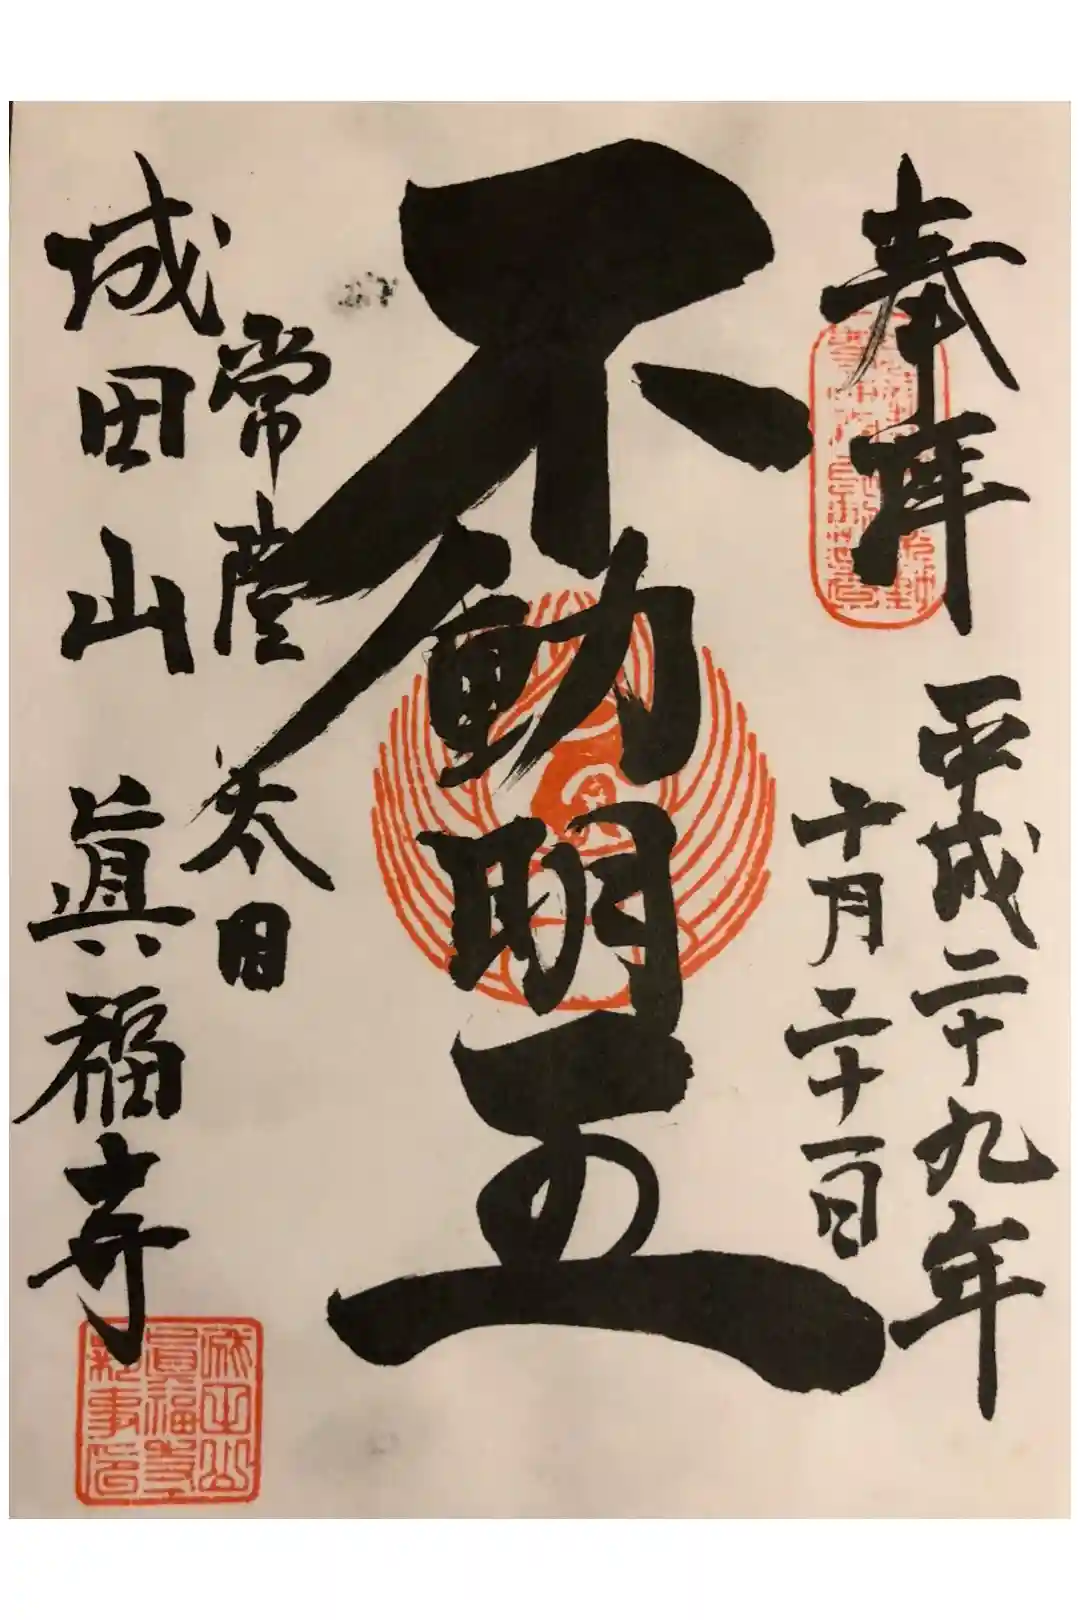 奉拝
平成二十九年
十月二十一日
不動明王
常陸太田
成田山 眞福寺
成田山
眞福寺